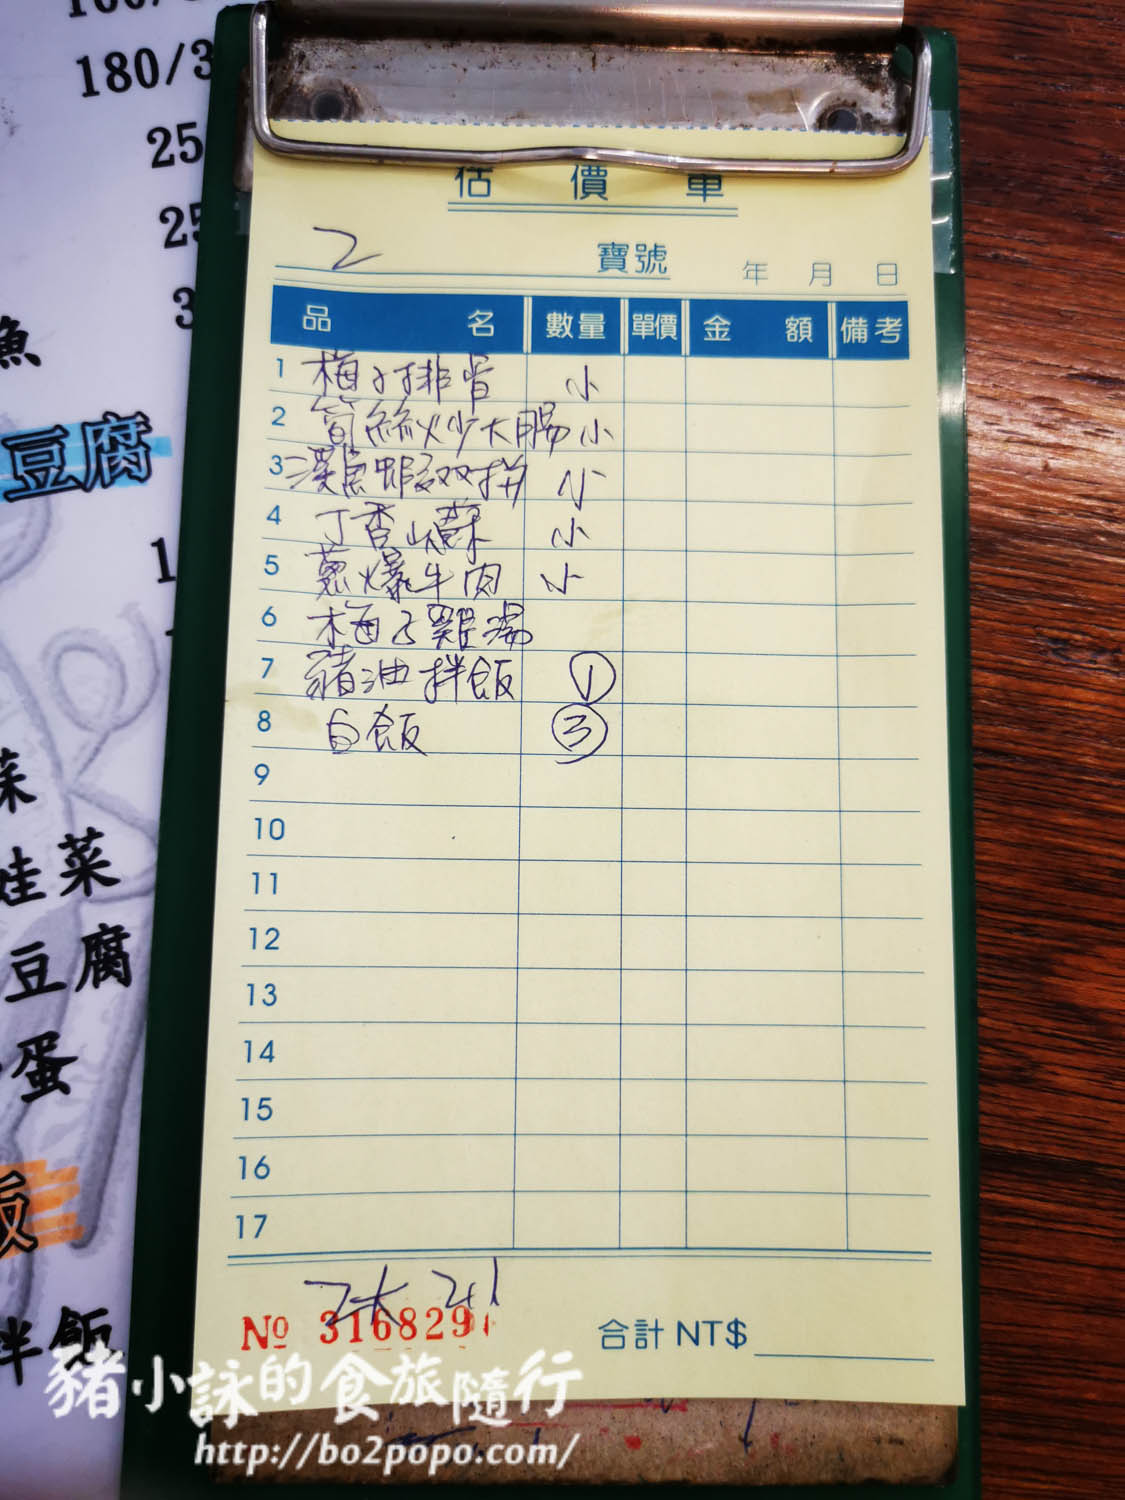 180/3
25
25
3
魚
豆腐
1
菜
娃菜
豆腐
蛋
飯
拌飯
估價單
2 寶號 年 月 日
品名 數量 單價 金額 備考
1 梅子排骨 小
2 筍絲炒大腸 小
3 溪魚蝦双拼 小
4 丁香山蘇 小
5 蔥爆牛肉 小
6 梅子雞湯
7 豬油拌飯 ①
8 白飯 ③
9
10
11
12
13
14
15
16
17
2大 2小
№ 316829
合計 NT$
豬小詠的食旅隨行
http://bo2popo.com/